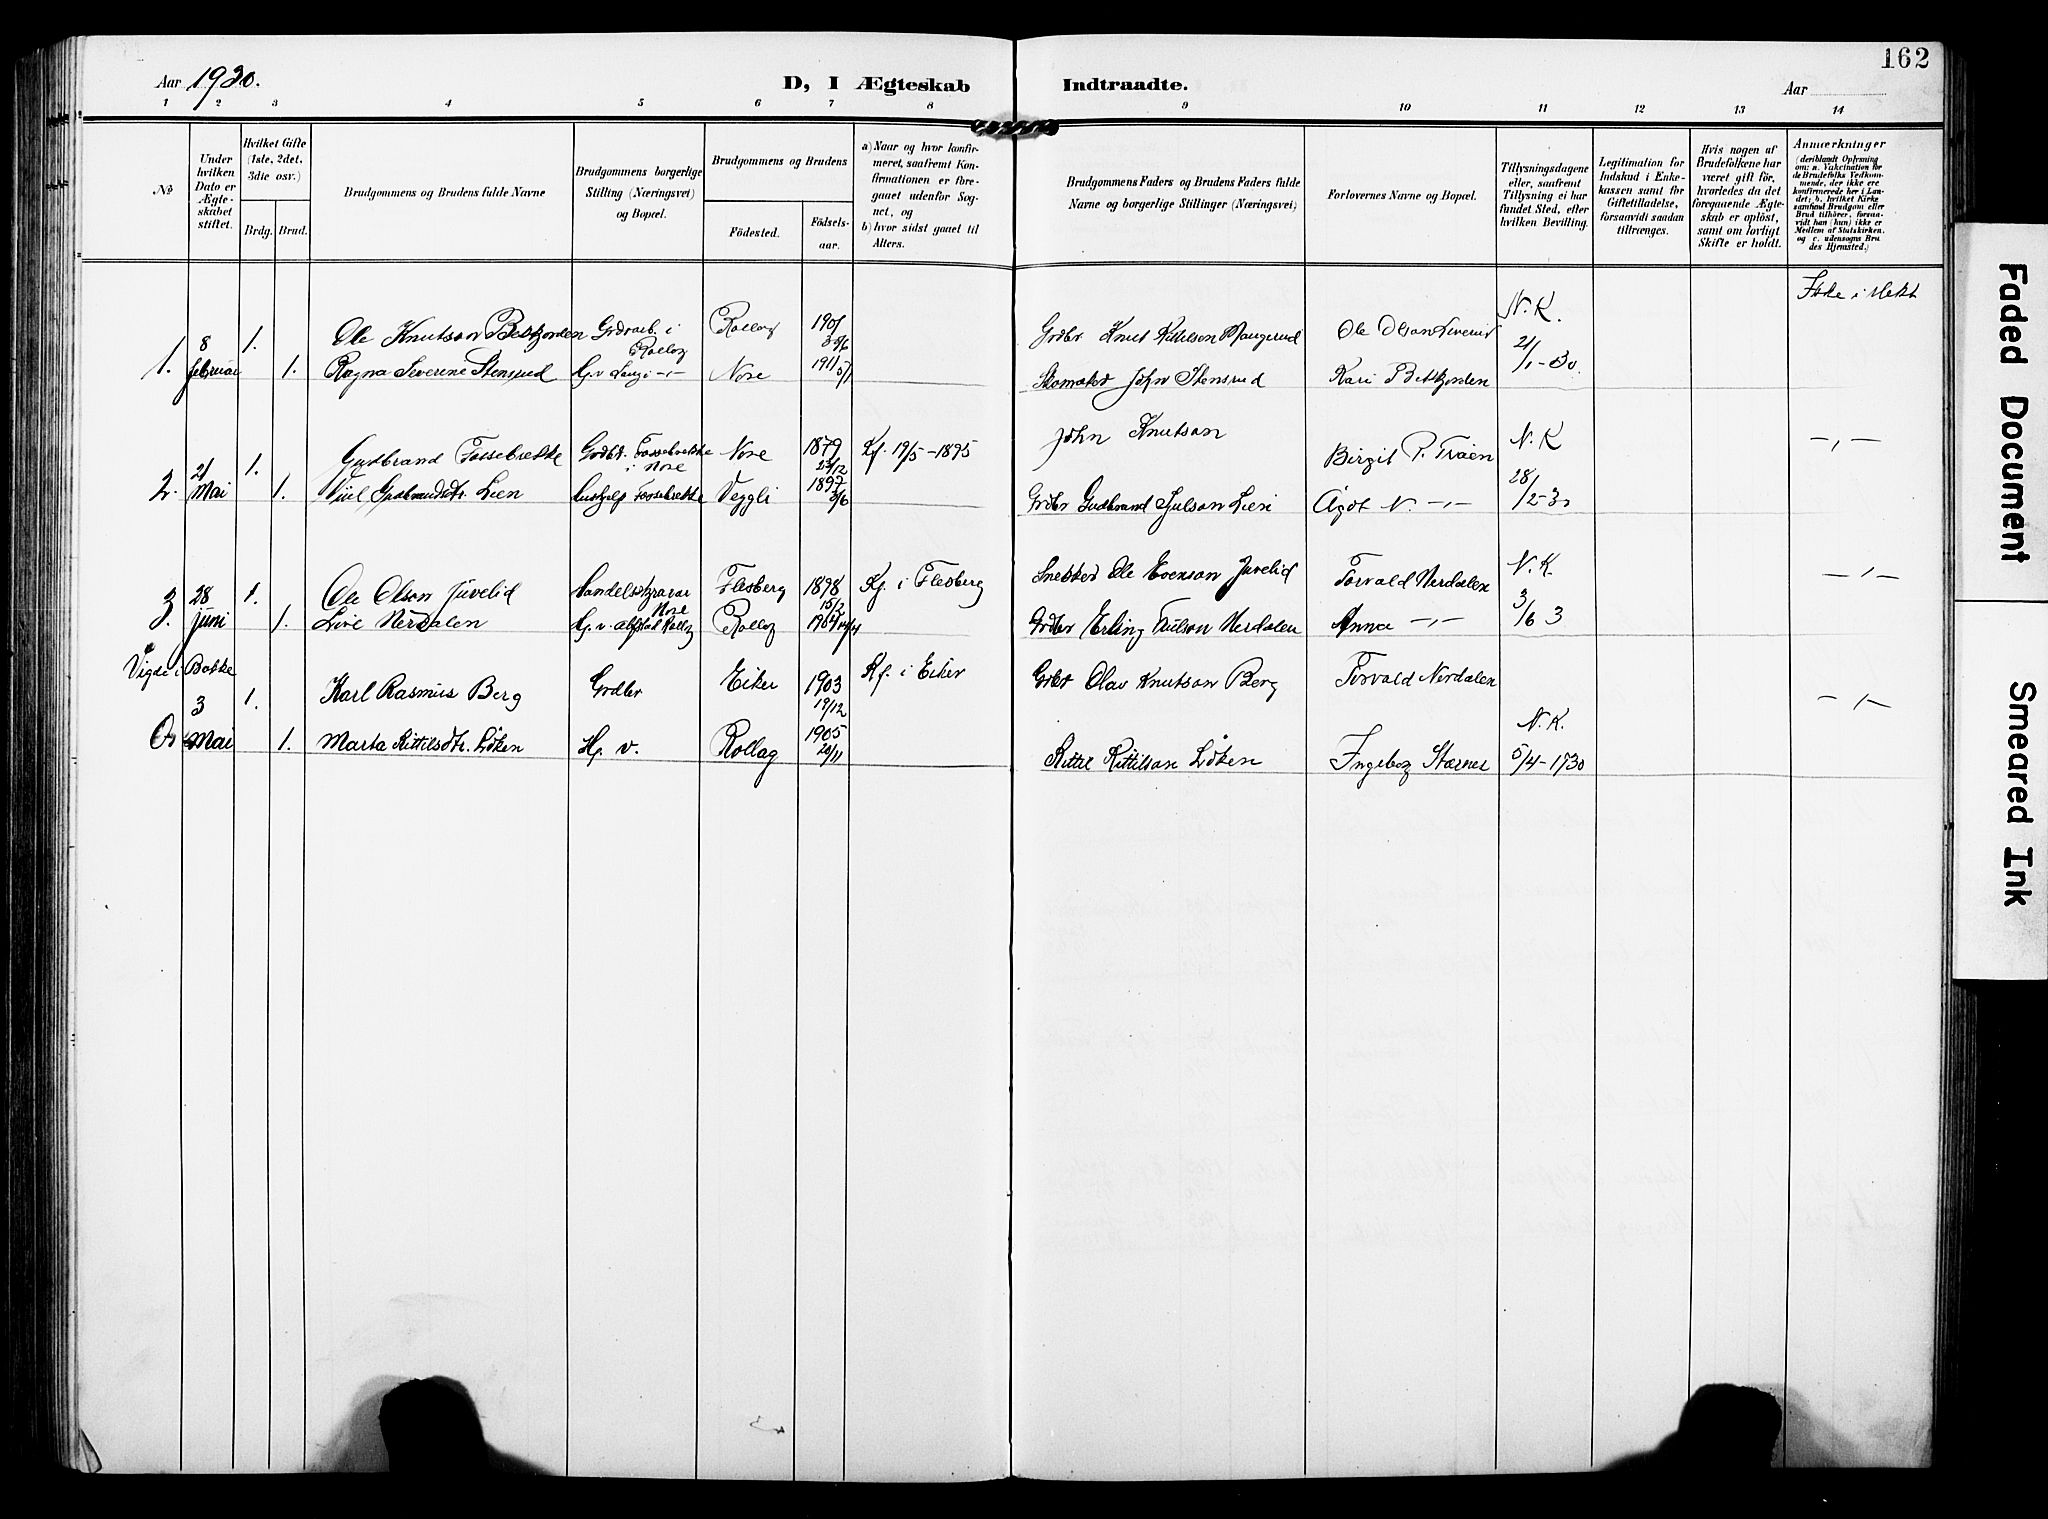 162
Aar 1930.
D, I Ægteskab Indtraadte.
Aar
1 2 3 4 5 6 7 8 9 10 11 12 13 14
No
Under hvilken Dato er Ægteskabet stiftet.
Hvilket Gifte (1ste, 2det, 3die osv.)
Brdg. Brud.
Brudgommens og Brudens fulde Navne
Brudgommens borgerlige Stilling (Næringsvei) og Bopæl.
Brudgommens og Brudens
Födested. Födselsaar.
a) Naar og hvor konfirmeret, saafremt Konfirmationen er foregaaet udenfor Sognet, og
b) hvor sidst gaaet til Alters.
Brudgommens Faders og Brudens Faders fulde Navne og borgerlige Stillinger (Næringsvei)
Forlovernes Navne og Bopæl.
Tillysningsdagene eller, saafremt Tillysning ei har fundet Sted, efter hvilken Bevilling.
Legitimation for Indskud i Enkekassen samt for Giftetilladelse, forsaavidt saadan tiltrænges.
Hvis nogen af Brudefolkene har været gift för, hvorledes da det foregaaende Ægteskab er oplöst, samt om lovligt Skifte er holdt.
Anmærkninger
(deriblandt Oplysning om: a. Vakcination for de Brudefolks Vedkommende, der ikke ere konfirmerede her i Landet; b. hvilket Kirkesamfund Brudgom eller Brud tilhörer, forsaavidt han (hun) ikke er Medlem af Statskirken, og c. udensogns Brudes Hjemsted.)
1. 8 februar 1. Ole Knutson Bekkjorden Grdarb. i Rollag Rollag 1901 Grdbr Knut Kittilson Haugerud Ole Olson N. K. Ikke i slekt
1. Ragna Severine Stensrud Nore 1911 5/1 Skomaker John Stensrud Kari Bekkjorden 21/1-30.
2. 21 Mai 1. Gudbrand Fossebrekke Grdbr. Fossebrekke i Nore Nore 1879 Kf. 19/5-1895 John Knutson Birgit P. Traen N. K. -,-
1. Lien hushjelp Fossebrekke Veggli 1897 Grdbr Gudbrand Lien Ågot N. -,- 28/2-30
3. 28 juni 1. Ole Olson Juvelid Nore Flesberg 1898 15/2 Kf. i Flesberg Snekker Ole Evenson Juvelid Torvald Nerdalen N. K. -,-
1. Live Nerdalen Rollag 1904 Grdbr Erling Nerdalen Anna -,- 3/6 3
Vigde i Bakke
3 1. Karl Rasmus Berg Grdbr Eiker 1903 19/12 Kf. i Eiker Grdbr Olav Knutson Berg Torvald Nerdalen N. K. -,-
Mai 1. Marta Kittilsdtr. Løken Hj. v. Rollag 1905 20/11 Kittil Kittilson Løken Ingeborg 5/4-1930
Faded Document
Smeared Ink